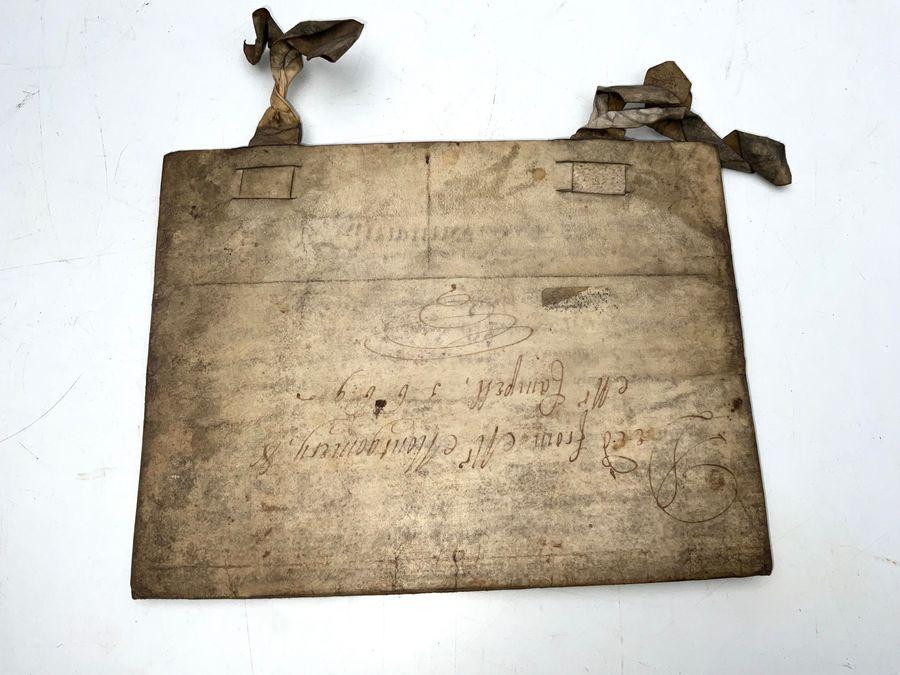 Deed from Mr Montgomery, &
Mr Campell, 1669